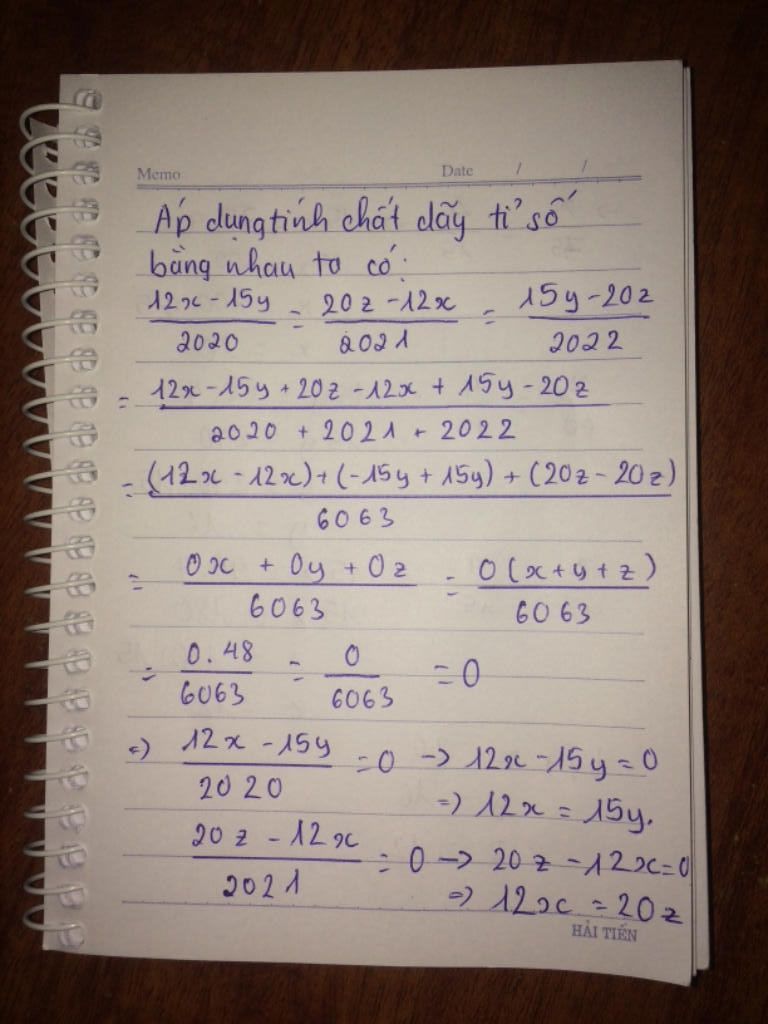 Memo Date / /
Áp dụng tính chất dãy tỉ số
bằng nhau ta có:
12x - 15y / 2020 = 20z - 12x / 2021 = 15y - 20z / 2022
= 12x - 15y + 20z - 12x + 15y - 20z / 2020 + 2021 + 2022
= (12x - 12x) + (-15y + 15y) + (20z - 20z) / 6063
= 0x + 0y + 0z / 6063 = 0(x + y + z) / 6063
= 0.48 / 6063 = 0 / 6063 = 0
=> 12x - 15y / 2020 = 0 -> 12x - 15y = 0
=> 12x = 15y.
20z - 12x / 2021 = 0 -> 20z - 12x = 0
=> 12x = 20z
HẢI TIẾN